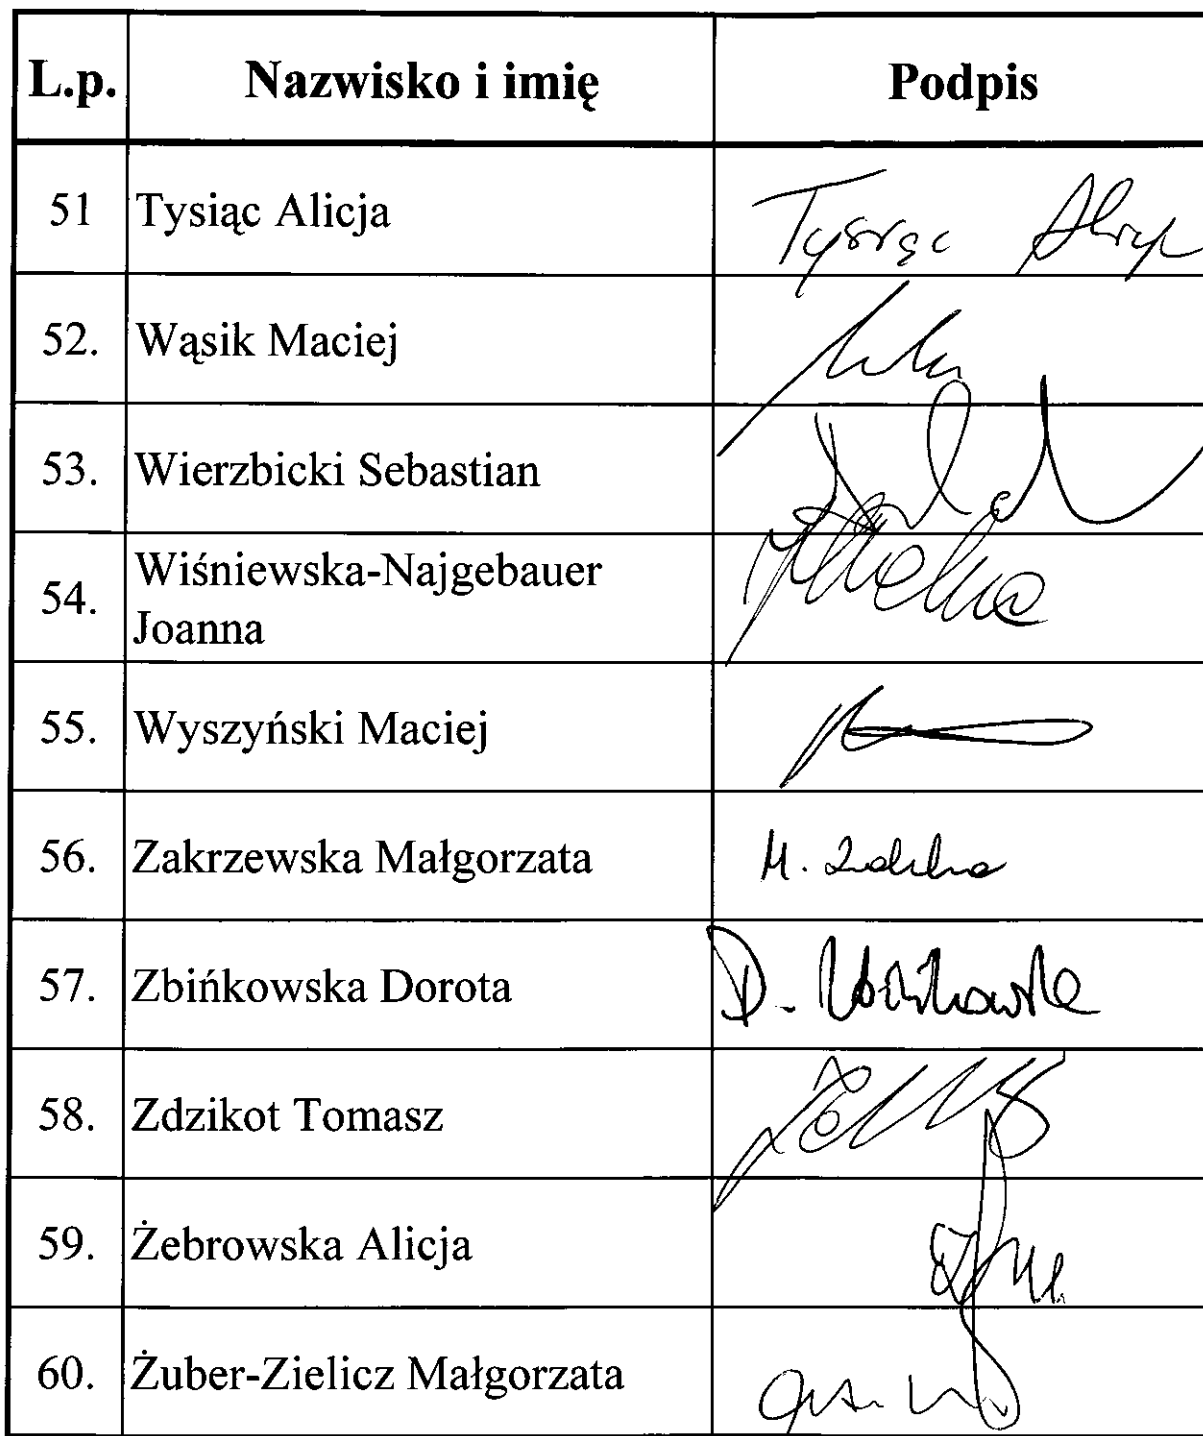 L.p. Nazwisko i imię Podpis
51 Tysiąc Alicja Tysiąc Alicja
52. Wąsik Maciej
53. Wierzbicki Sebastian
54. Wiśniewska-Najgebauer
Joanna
55. Wyszyński Maciej
56. Zakrzewska Małgorzata M.
57. Zbińkowska Dorota D. Zbińkowska
58. Zdzikot Tomasz
59. Żebrowska Alicja
60. Żuber-Zielicz Małgorzata